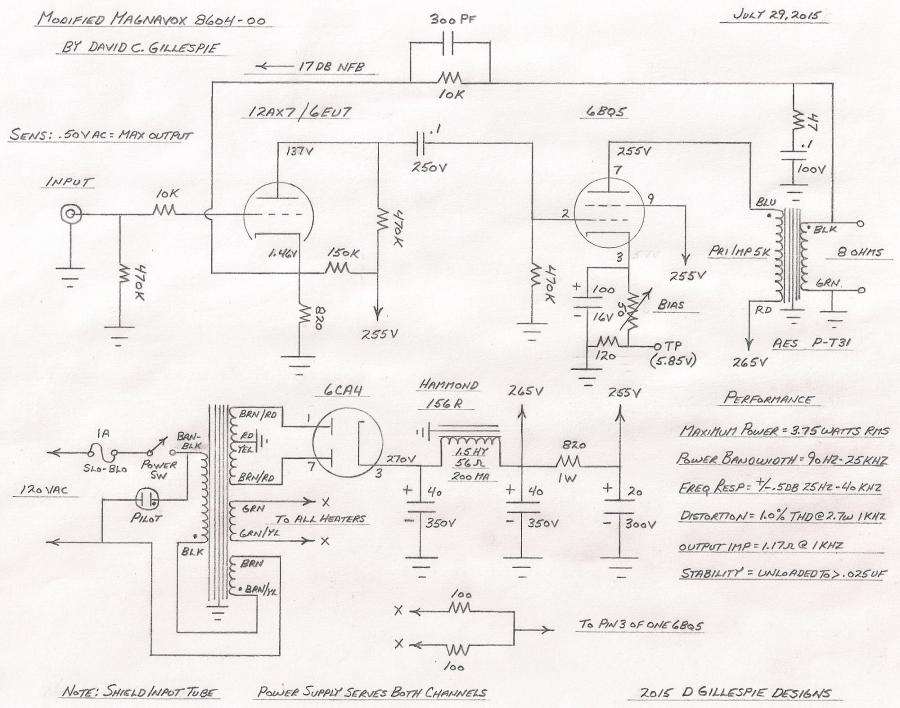 MODIFIED MAGNAVOX 8604-00
BY DAVID C. GILLESPIE
JULY 29, 2015
300 PF
17 DB NFB
10K
12AX7 / 6EU7
6BQ5
SENS: .50 VAC = MAX OUTPUT
137V
.1
250V
255V
7
47
.1
100V
INPUT
10K
470K
1.46V
150K
470K
820
255V
2
9
3
470K
255V
+ 100
- 16V
50
BIAS
120
TP
(5.85V)
BLU
PRI IMP 5K
RD
265V
BLK
8 OHMS
GRN
AES P-T31
6CA4
HAMMOND
156R
265V
255V
PERFORMANCE
MAXIMUM POWER = 3.75 WATTS RMS
POWER BANDWIDTH = 90HZ-25KHZ
FREQ RESP = +/- .5DB 25HZ-40KHZ
DISTORTION = 1.0% THD @ 2.7W 1KHZ
OUTPUT IMP = 1.17Ω @ 1KHZ
STABILITY = UNLOADED TO > .025UF
1A
SLO-BLO
POWER
SW
BRN-
BLK
120VAC
PILOT
BLK
BRN/RD
RD
YEL
BRN/RD
1
7
3
270V
1.5HY
56Ω
200MA
820
1W
+ 40
- 350V
+ 40
- 350V
+ 20
- 300V
GRN
GRN/YL
X
TO ALL HEATERS
X
BRN
BRN/YL
X
100
X
100
TO PIN 3 OF ONE 6BQ5
NOTE: SHIELD INPUT TUBE
POWER SUPPLY SERVES BOTH CHANNELS
2015 D GILLESPIE DESIGNS